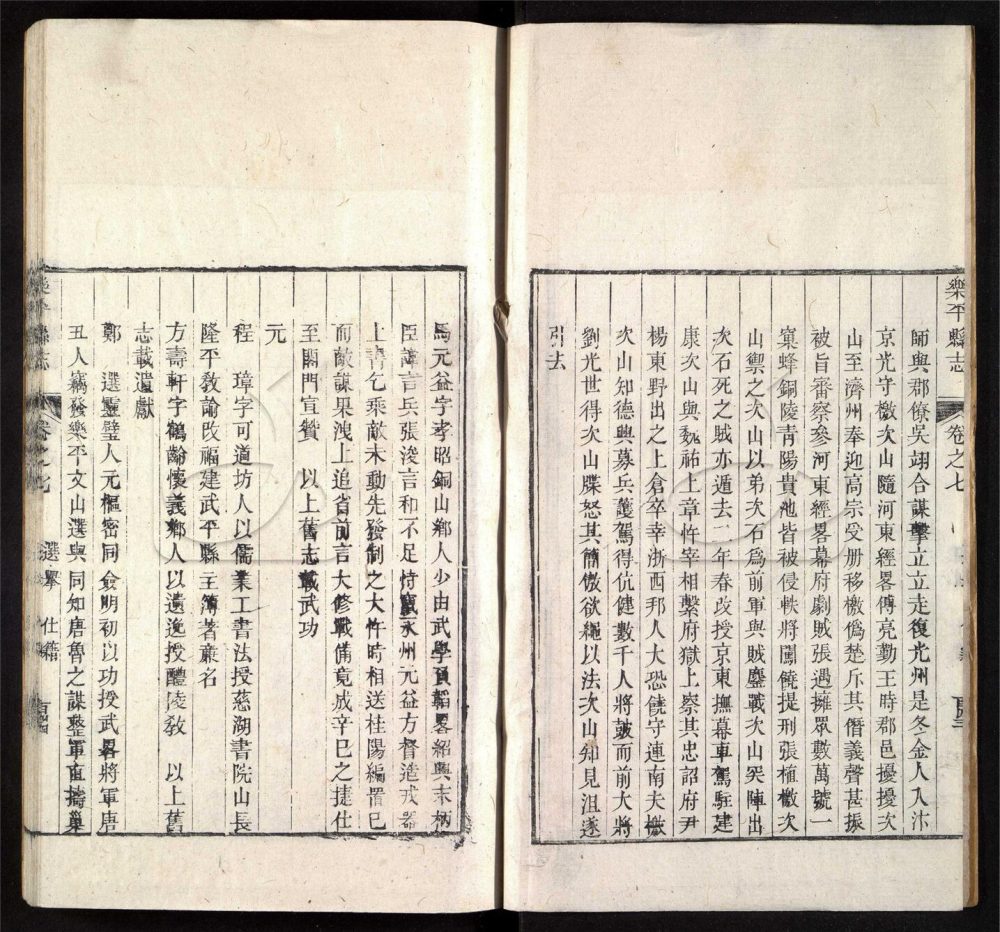 樂平縣志
卷之七
師與郡僚吳翊合謀擊立立走復光州是冬金人入汴
京光守檄次山隨河東經畧傅亮勤王時郡邑擾擾次
山至濟州奉迎高宗受册移檄僞楚斥其僭義聲甚振
被旨審察參河東經畧幕府劇賊張遇擁眾數萬號一
窠蜂銅陵青陽貴池皆被侵軼將圍饒提刑張植檄次
山禦之次山以弟次石爲前軍與賊鏖戰次山突陣出
次石死之賊亦遁去二年春改授京東撫幕車駕駐建
康次山與魏祐上章忤宰相繫府獄上察其忠詔府尹
楊東野出之上倉卒幸浙西邦人大恐饒守連南夫檄
次山知德興募兵護駕得伉健數千人將鼓而前大將
劉光世得次山牒怒其簡傲欲繩以法次山知見沮遂
引去
馬元益字孝昭銅山鄉人少由武學負韜畧紹興末柄
臣諱言兵張浚言和不足恃竄永州元益方督造戎器
上書乞乘敵未動先發制之大忤時相送桂陽編置已
而敵謀果洩上追省前言大修戰備竟成辛巳之捷仕
至閤門宣贊 以上舊志載武功
元
程 璋字可道坊人以儒業工書法授慈湖書院山長
隆平敎諭改福建武平縣主簿著廉名
方壽軒字鶴齡懷義鄉人以遺逸授醴陵敎 以上舊
志載遺獻
鄭 選靈璧人元樞密同僉明初以功授武畧將軍唐
丑人竊發樂平文山選與同知唐魯之謀整軍直擣巢
樂平縣志
卷之七
選舉 仕籍